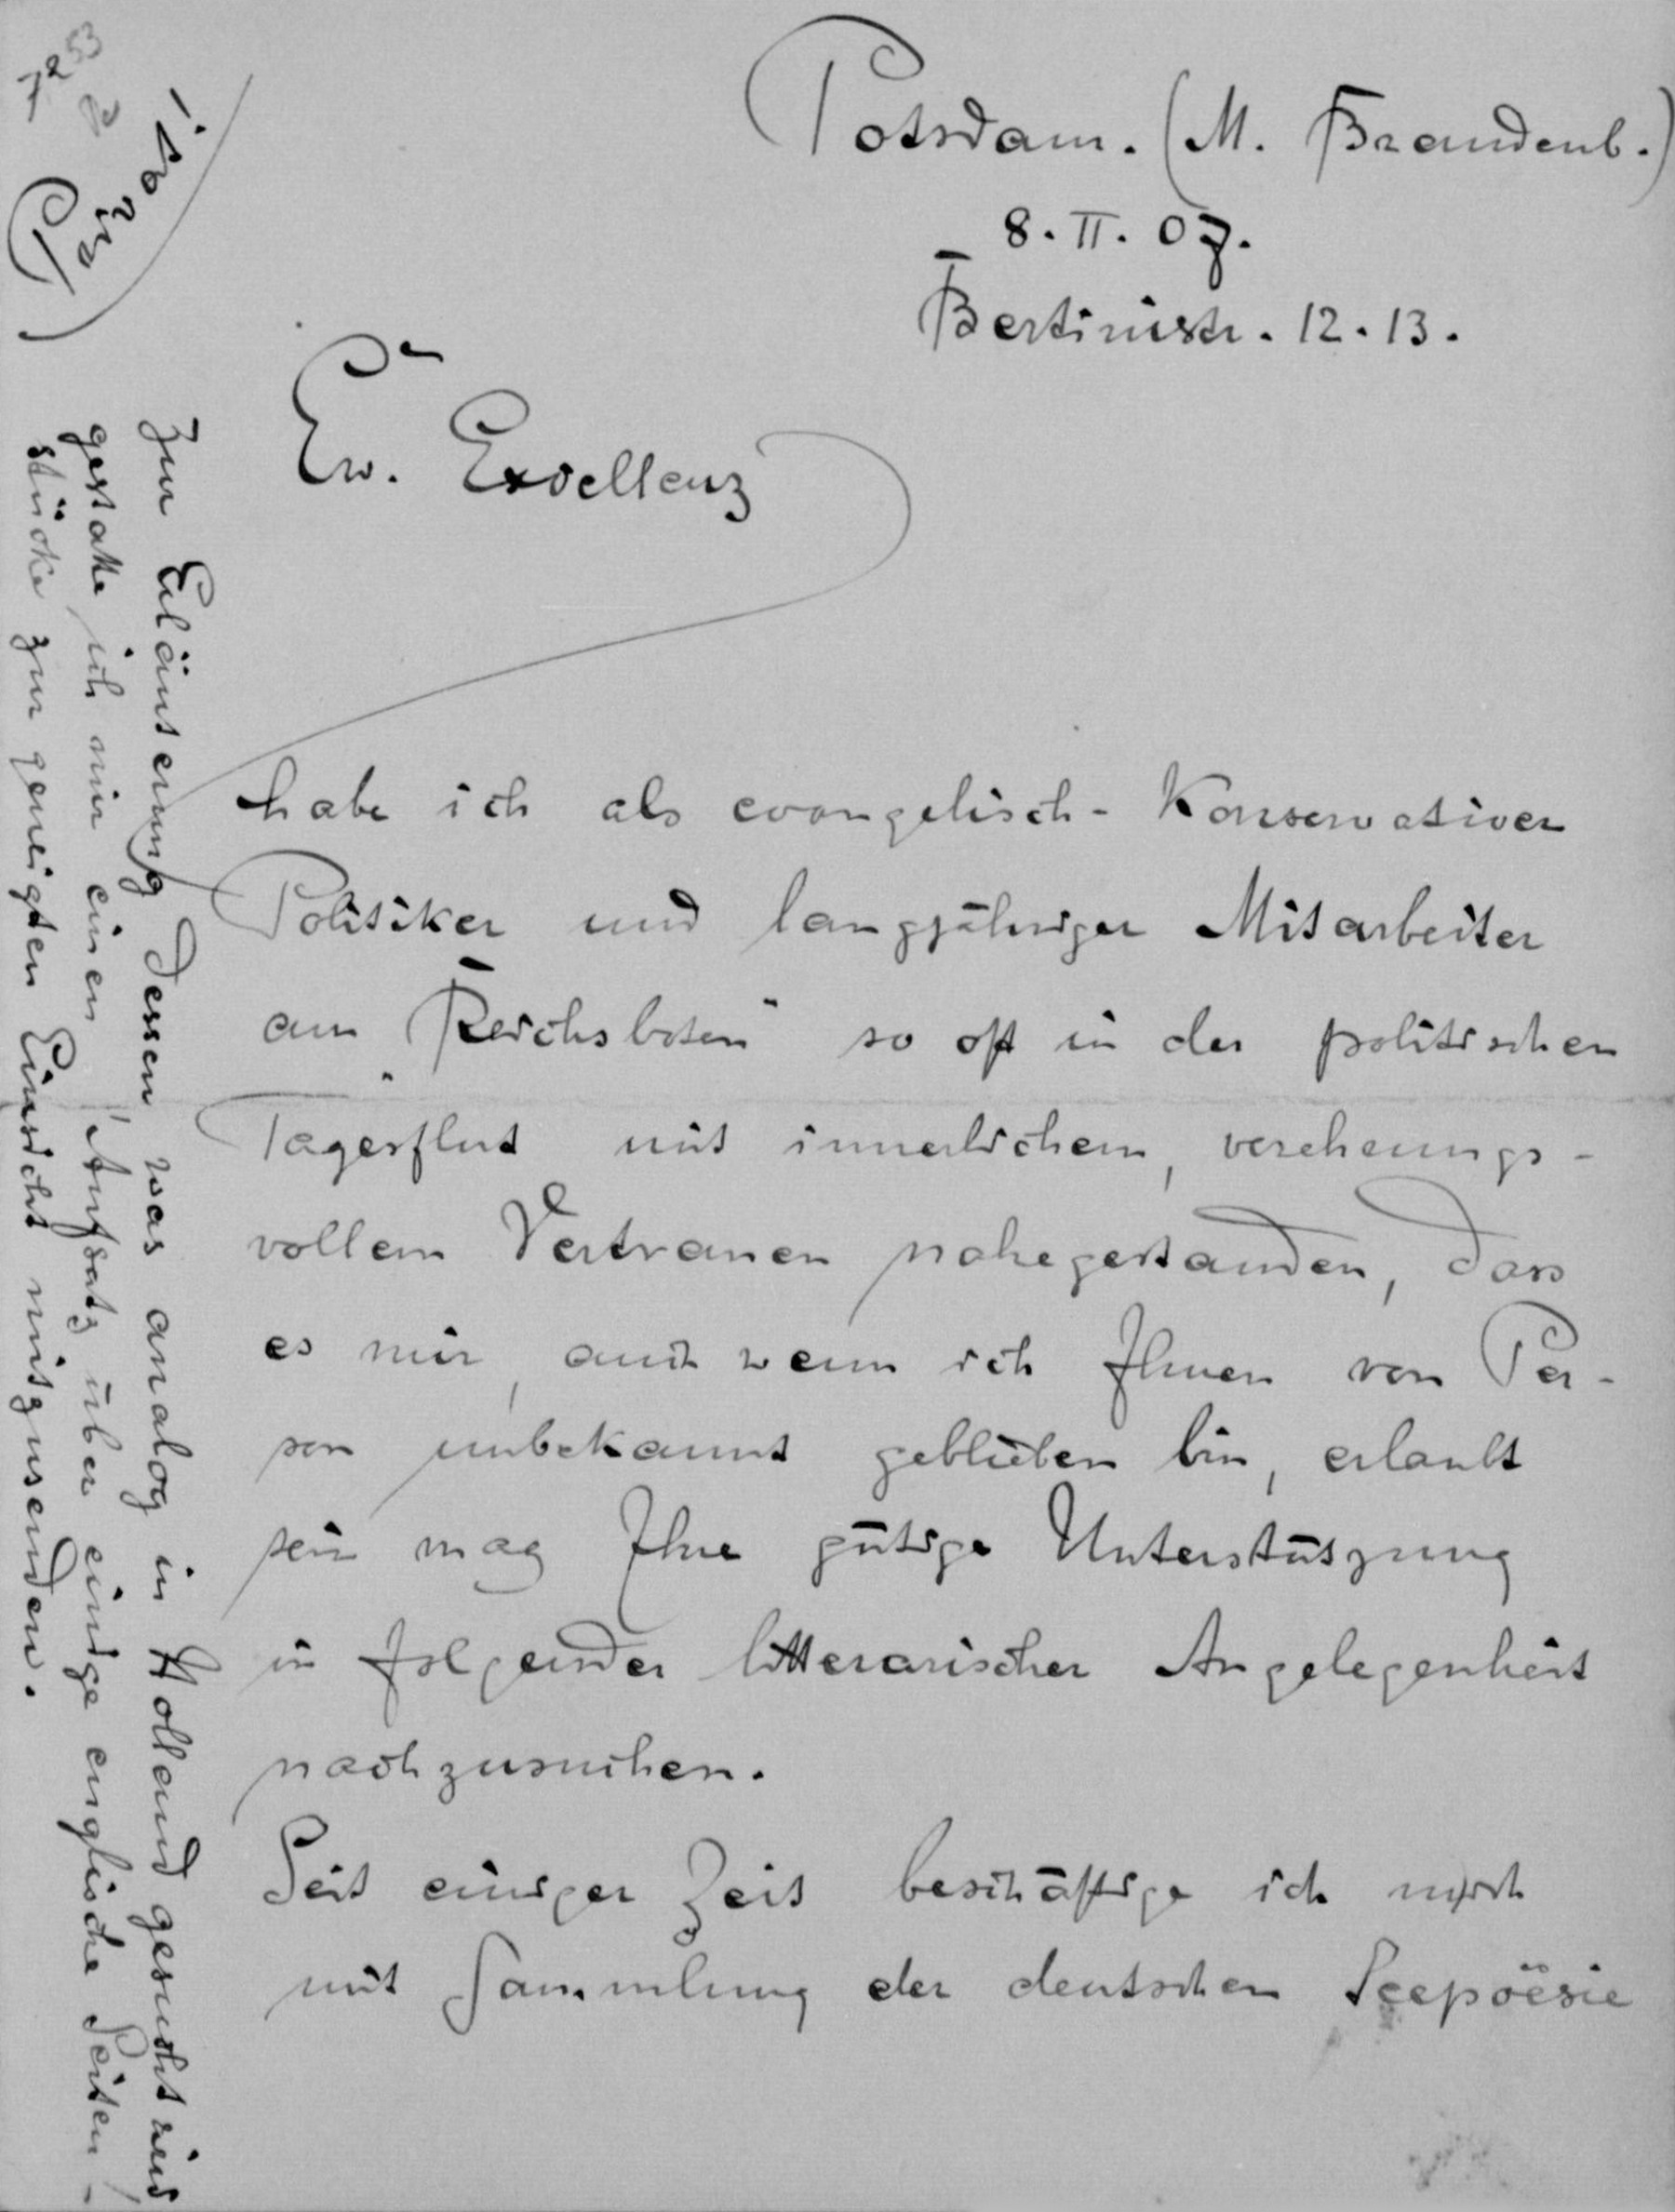 Potsdam. (M. Brandenb.)
8. II. 07.
Bertinistr. 12. 13.
Ew. Excellenz
habe ich als evangelisch-Konservativer
Politiker und langjähriger Mitarbeiter
am „Reichsboten" so oft in der politischen
Tagesflut mit innerlichem, verehrungs-
vollem Vertrauen nahegestanden, dass
es mir, auch wenn ich Ihnen von Per-
son unbekannt geblieben bin, erlaubt
sein mag Ihre gütige Unterstützung
in folgender litterarischer Angelegenheit
nachzusuchen.
Seit einiger Zeit beschäftige ich mich
mit Sammlung der deutschen Seepoësie
Zur Erläuterung dessen was analog in Holland gesucht wird
gestatte ich mir einen Aufsatz über einige englische Seiten-
stücke zur geneigten Einsicht mitzusenden.